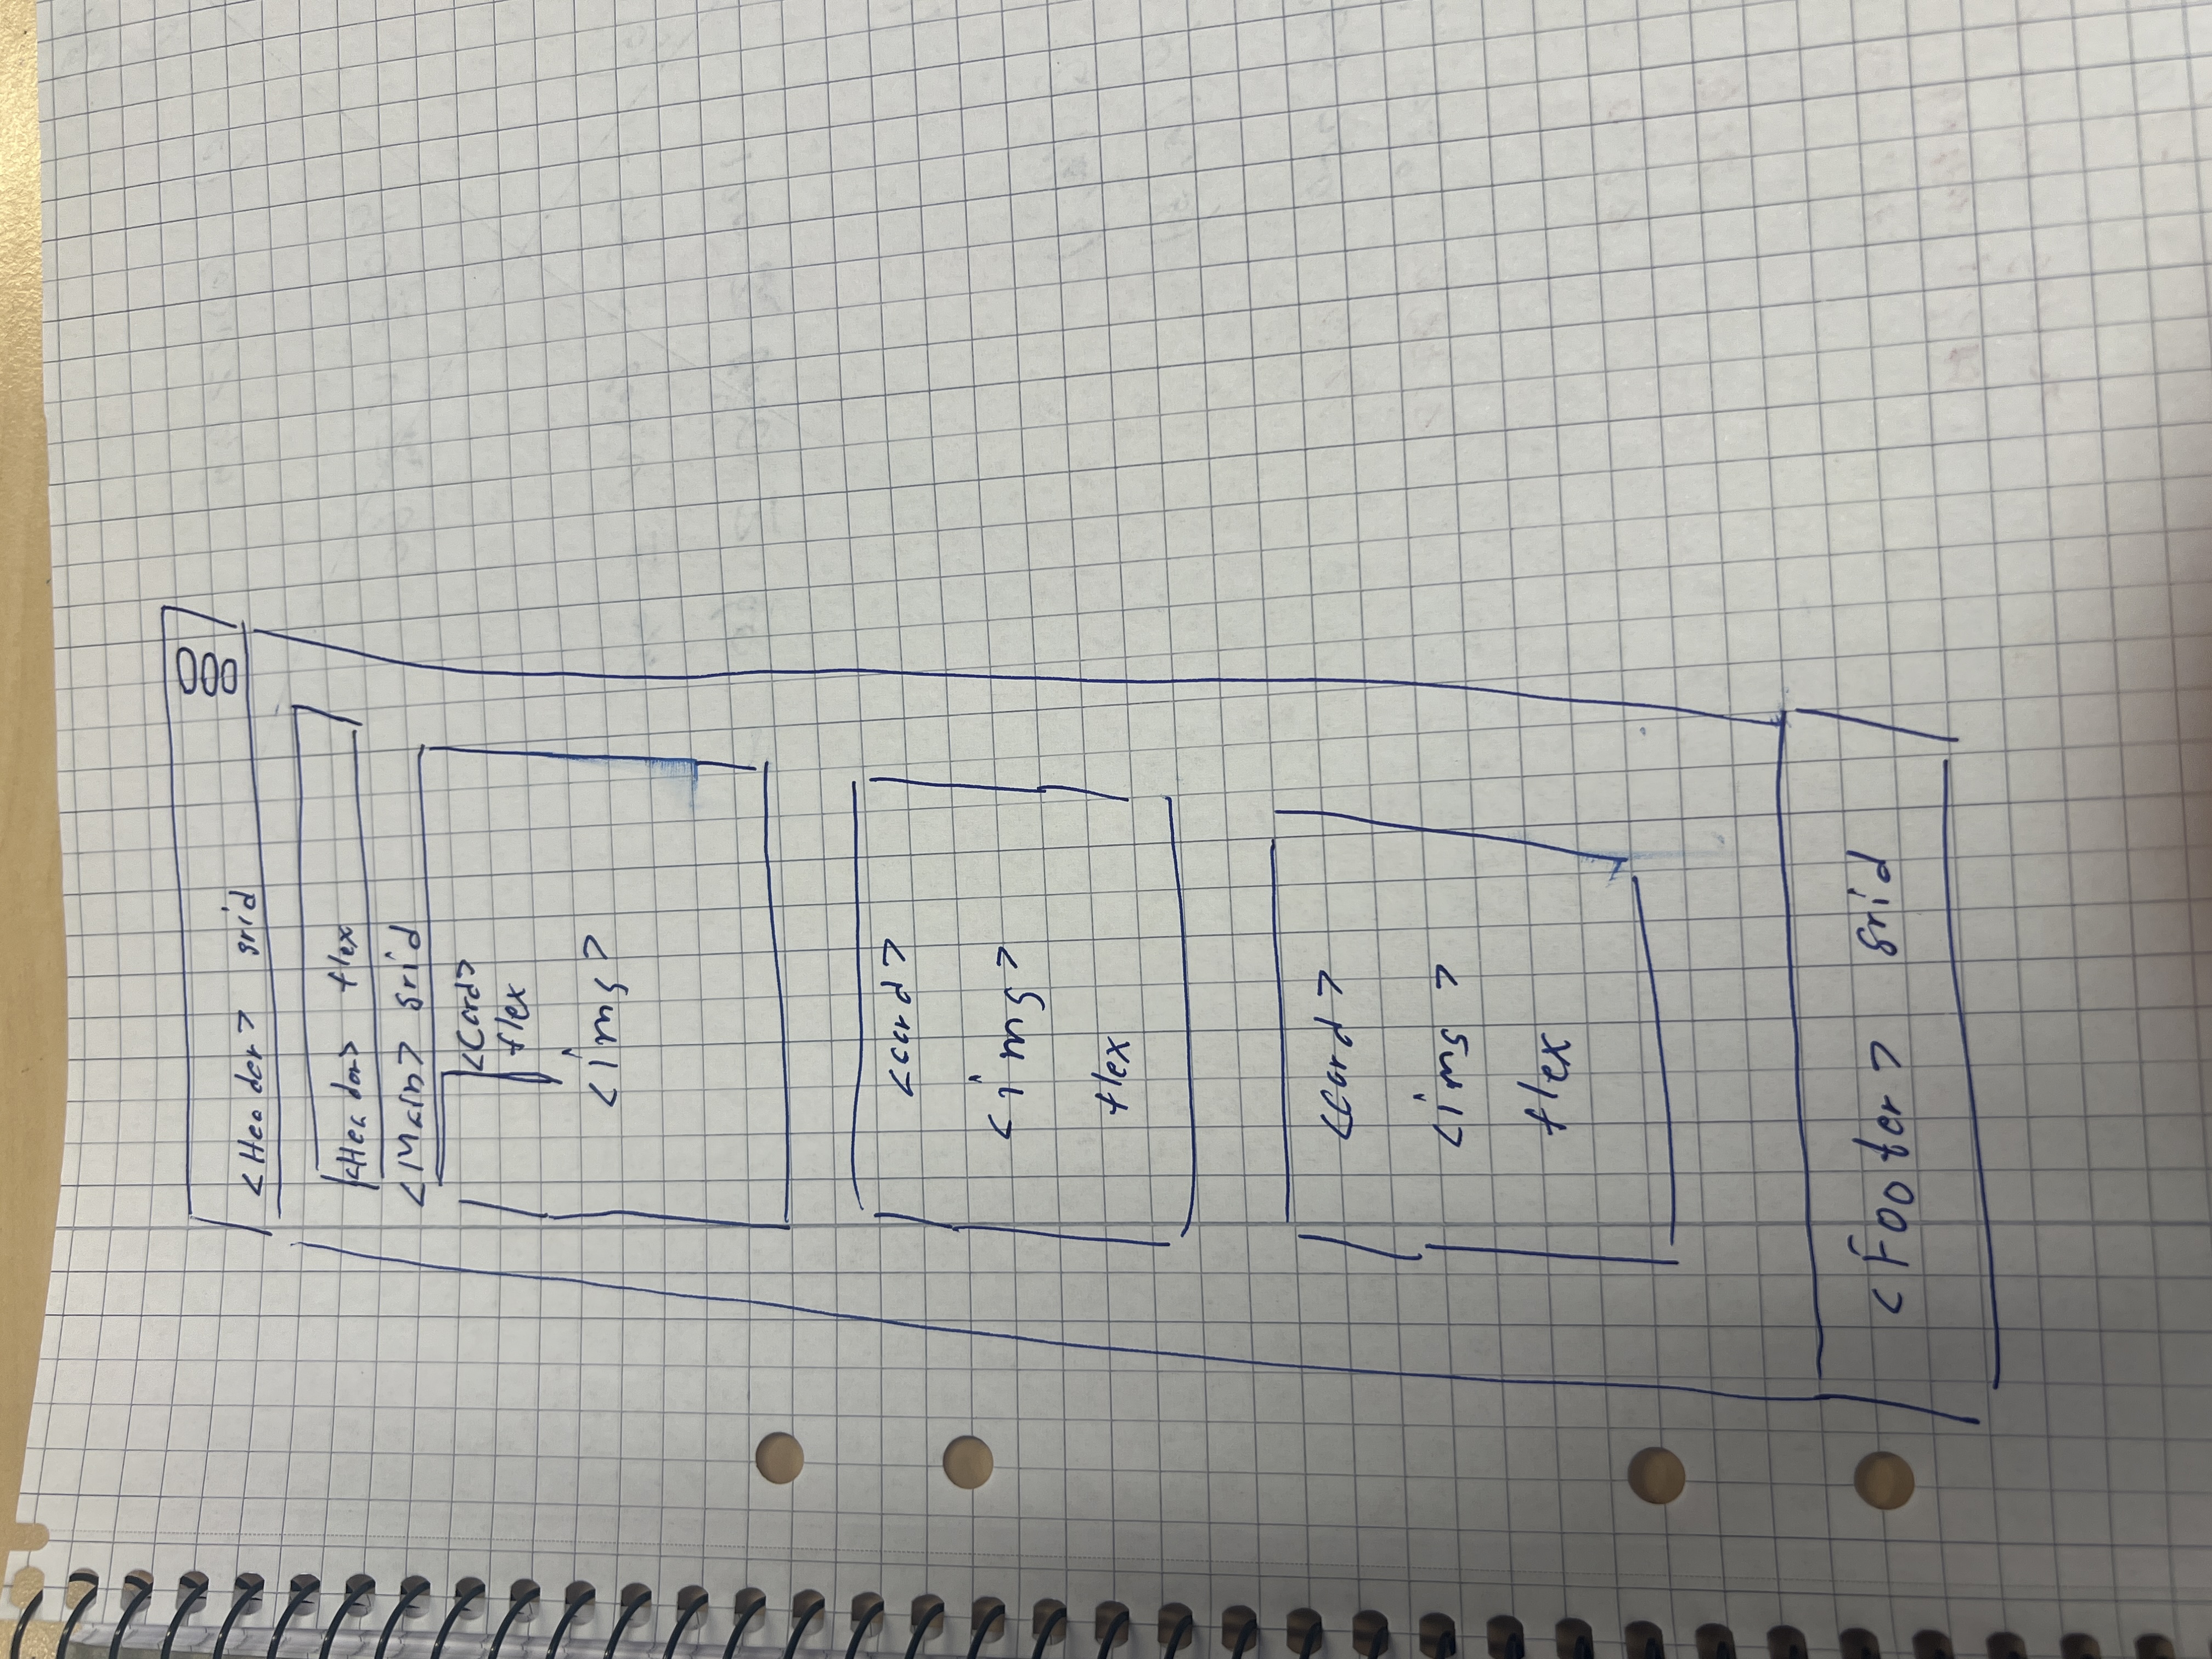 <Header> grid
<Header> flex
<Main> grid
<Card>
flex
<img>
<card>
<img>
flex
<card>
<img>
flex
<Footer> grid